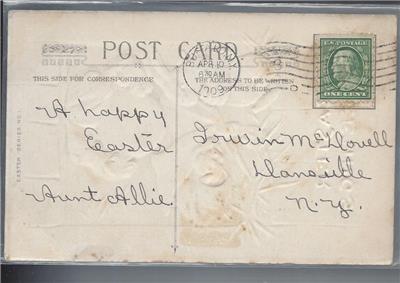 POST CARD
THIS SIDE FOR CORRESPONDENCE
THE ADDRESS TO BE WRITTEN
ON THIS SIDE
APR 10
1909
U.S. POSTAGE
ONE CENT
A happy
Easter
Aunt Allie.
Irwin
Dansville
N.Y.
EASTER SERIES NO. 1